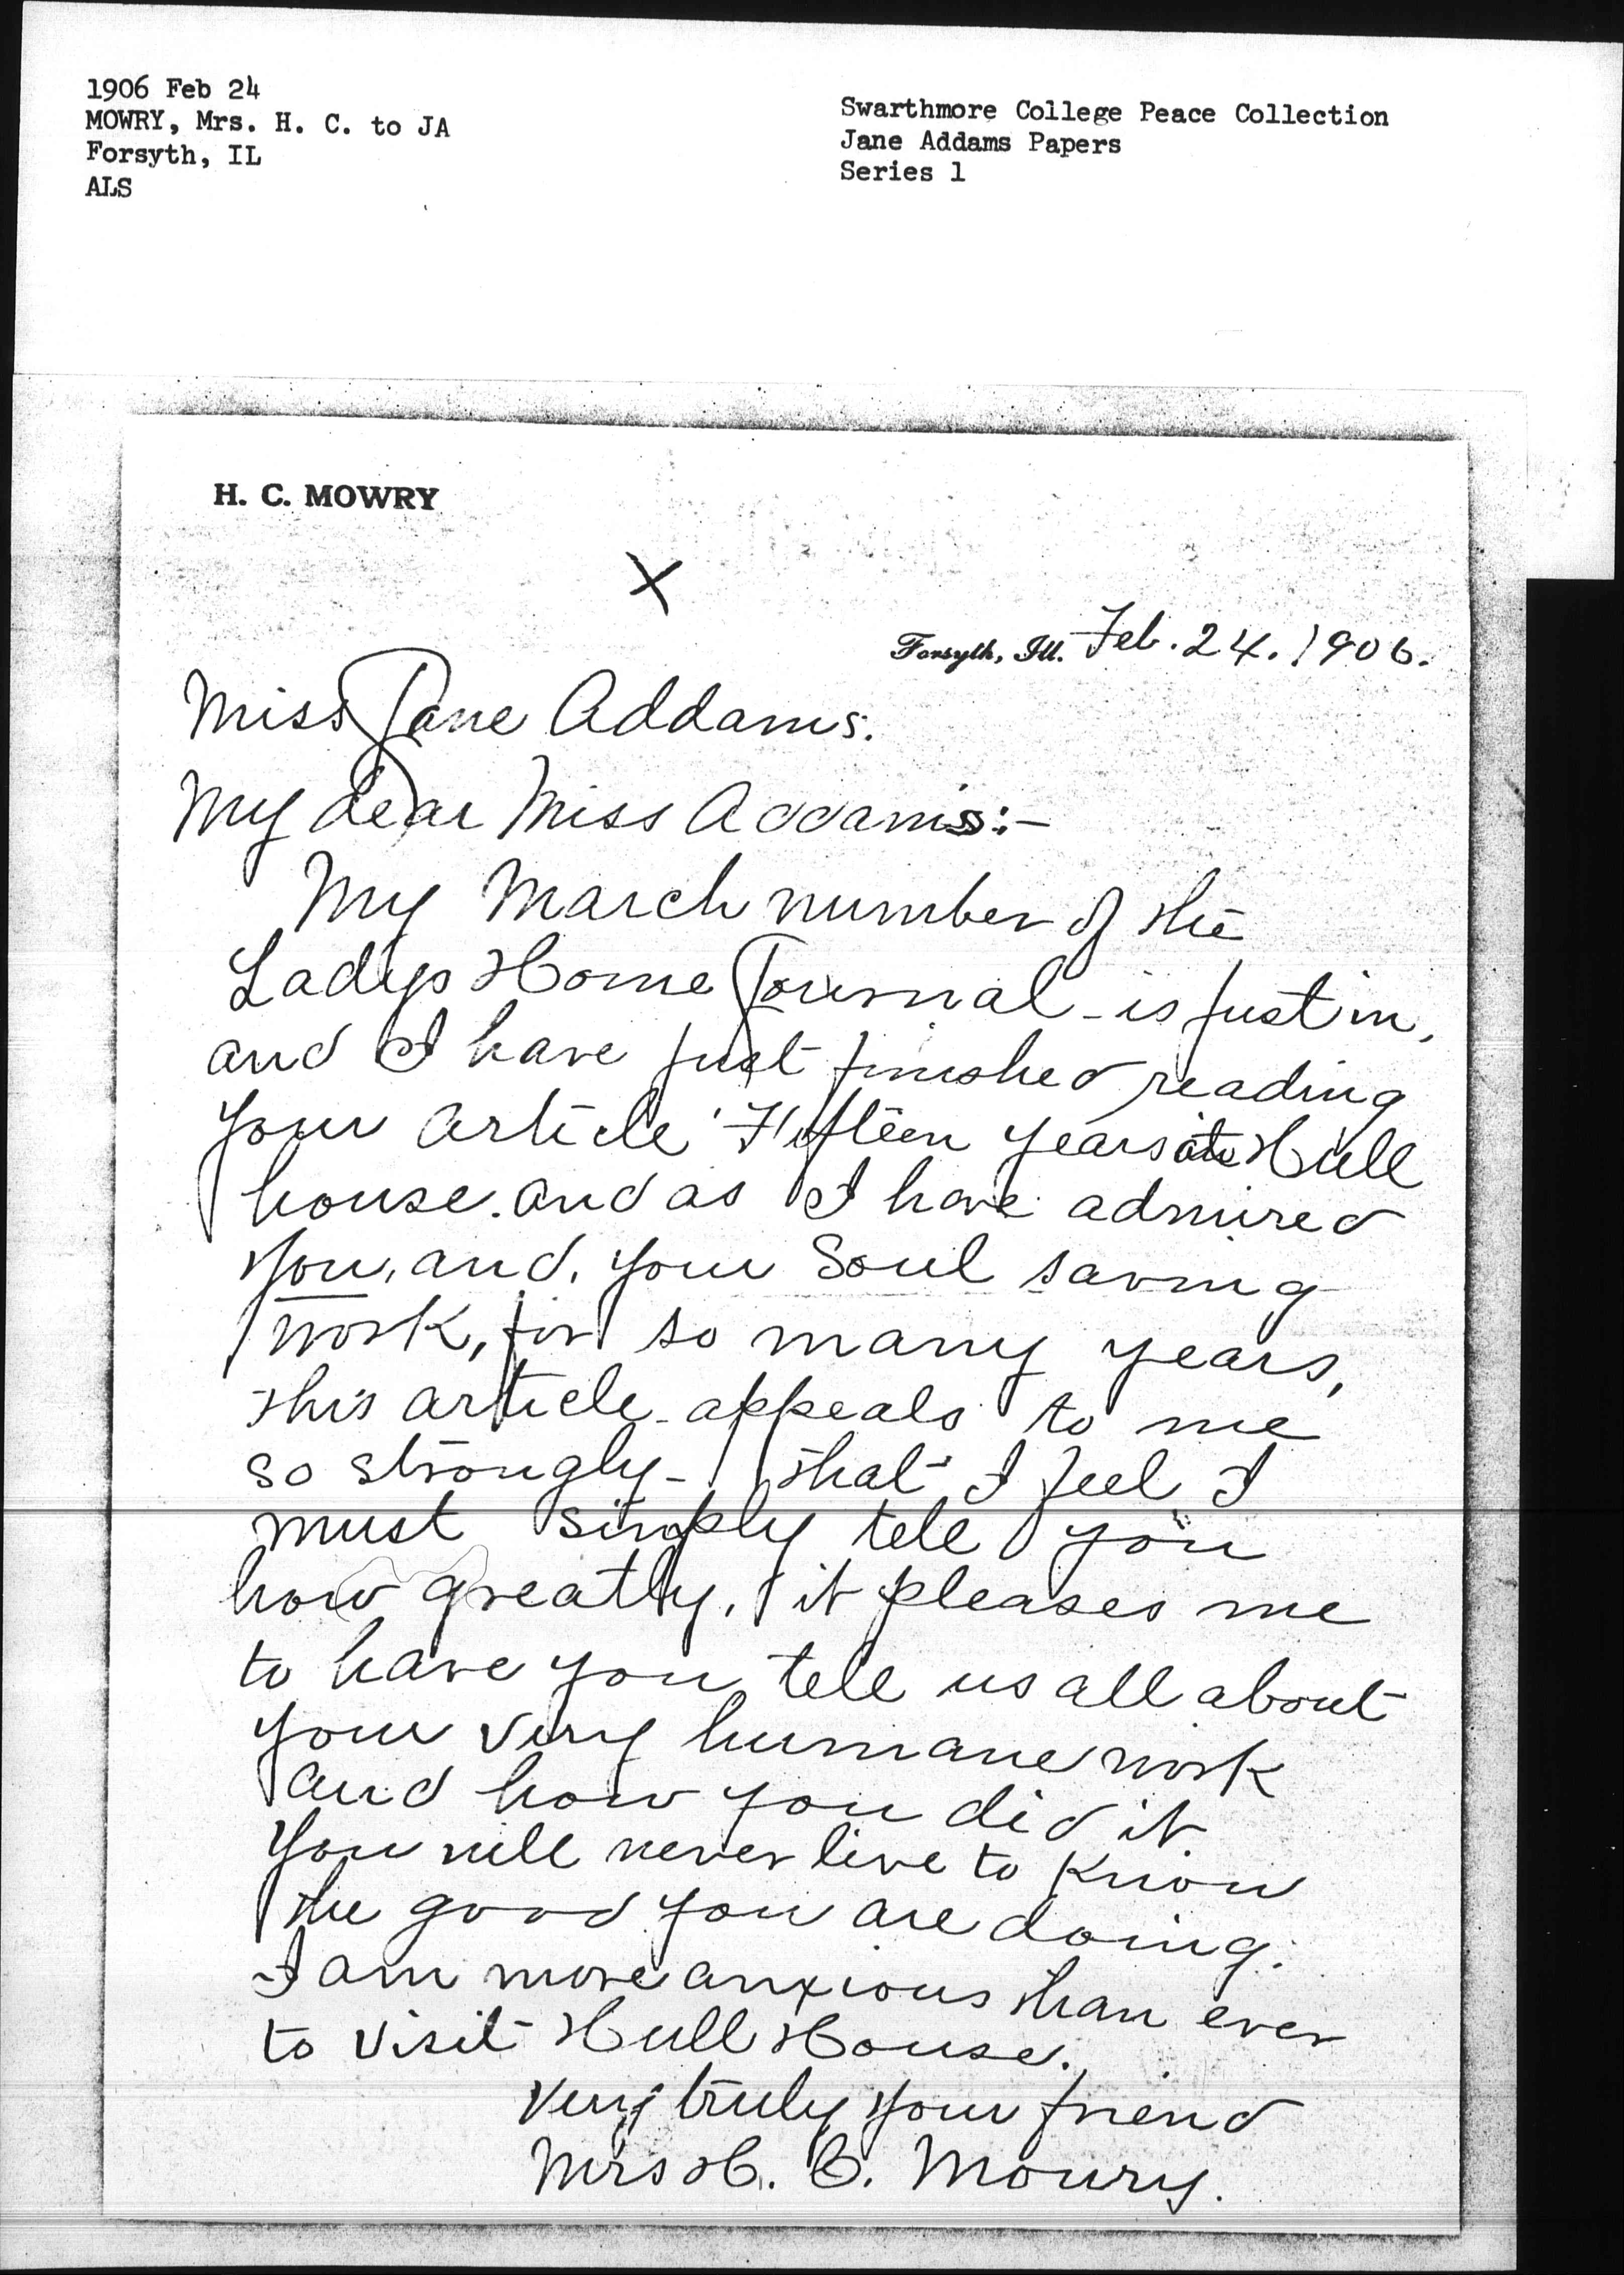 1906 Feb 24
MOWRY, Mrs. H. C. to JA
Forsyth, IL
ALS
Swarthmore College Peace Collection
Jane Addams Papers
Series 1
H. C. MOWRY
X
Forsyth, Ill. Feb. 24. 1906.
Miss Jane Addams.
My dear Miss Addams:-
My March number of the
Ladys Home Journal - is just in,
and I have just finished reading
your article 'Fifteen years at Hull
house. and as I have admired
you, and, your Soul saving
work, for so many years,
this article - appeals to me
so strongly - that I feel I
must simply tell you
how greatly, it pleases me
to have you tell us all about
your very humane work
and how you did it
you will never live to know
the good you are doing.
I am more anxious than ever
to visit Hull House.
Very truly your friend
Mrs H. C. Mowry.